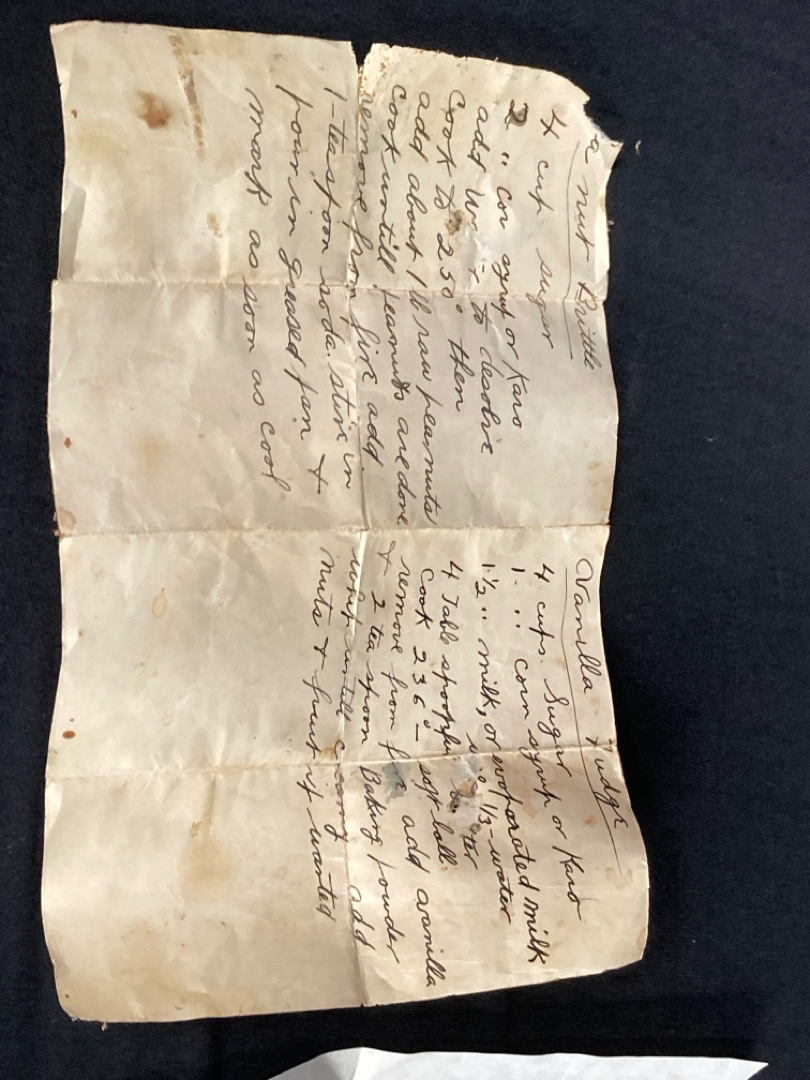 a nut Brittle
4 cup sugar
2 " cor syrup or Karo
add to desolve
Cook to 250° then
add about 1 lb raw peanuts
cook untill peanuts are done
remove from fire add
1-teaspoon soda. stir in
pour in greased pan +
mark as soon as cool
Vanilla Fudge
4 cups. Sugar
1 . " corn syrup or Karo
1 1/2 " milk, or evoporated milk
1/3-water
4 Table spoonfu
cook 236° - soft ball
remove from add vanilla
+ 2 tea spoon Baking Powder
whip untill creamy add
nuts + fruit if wanted